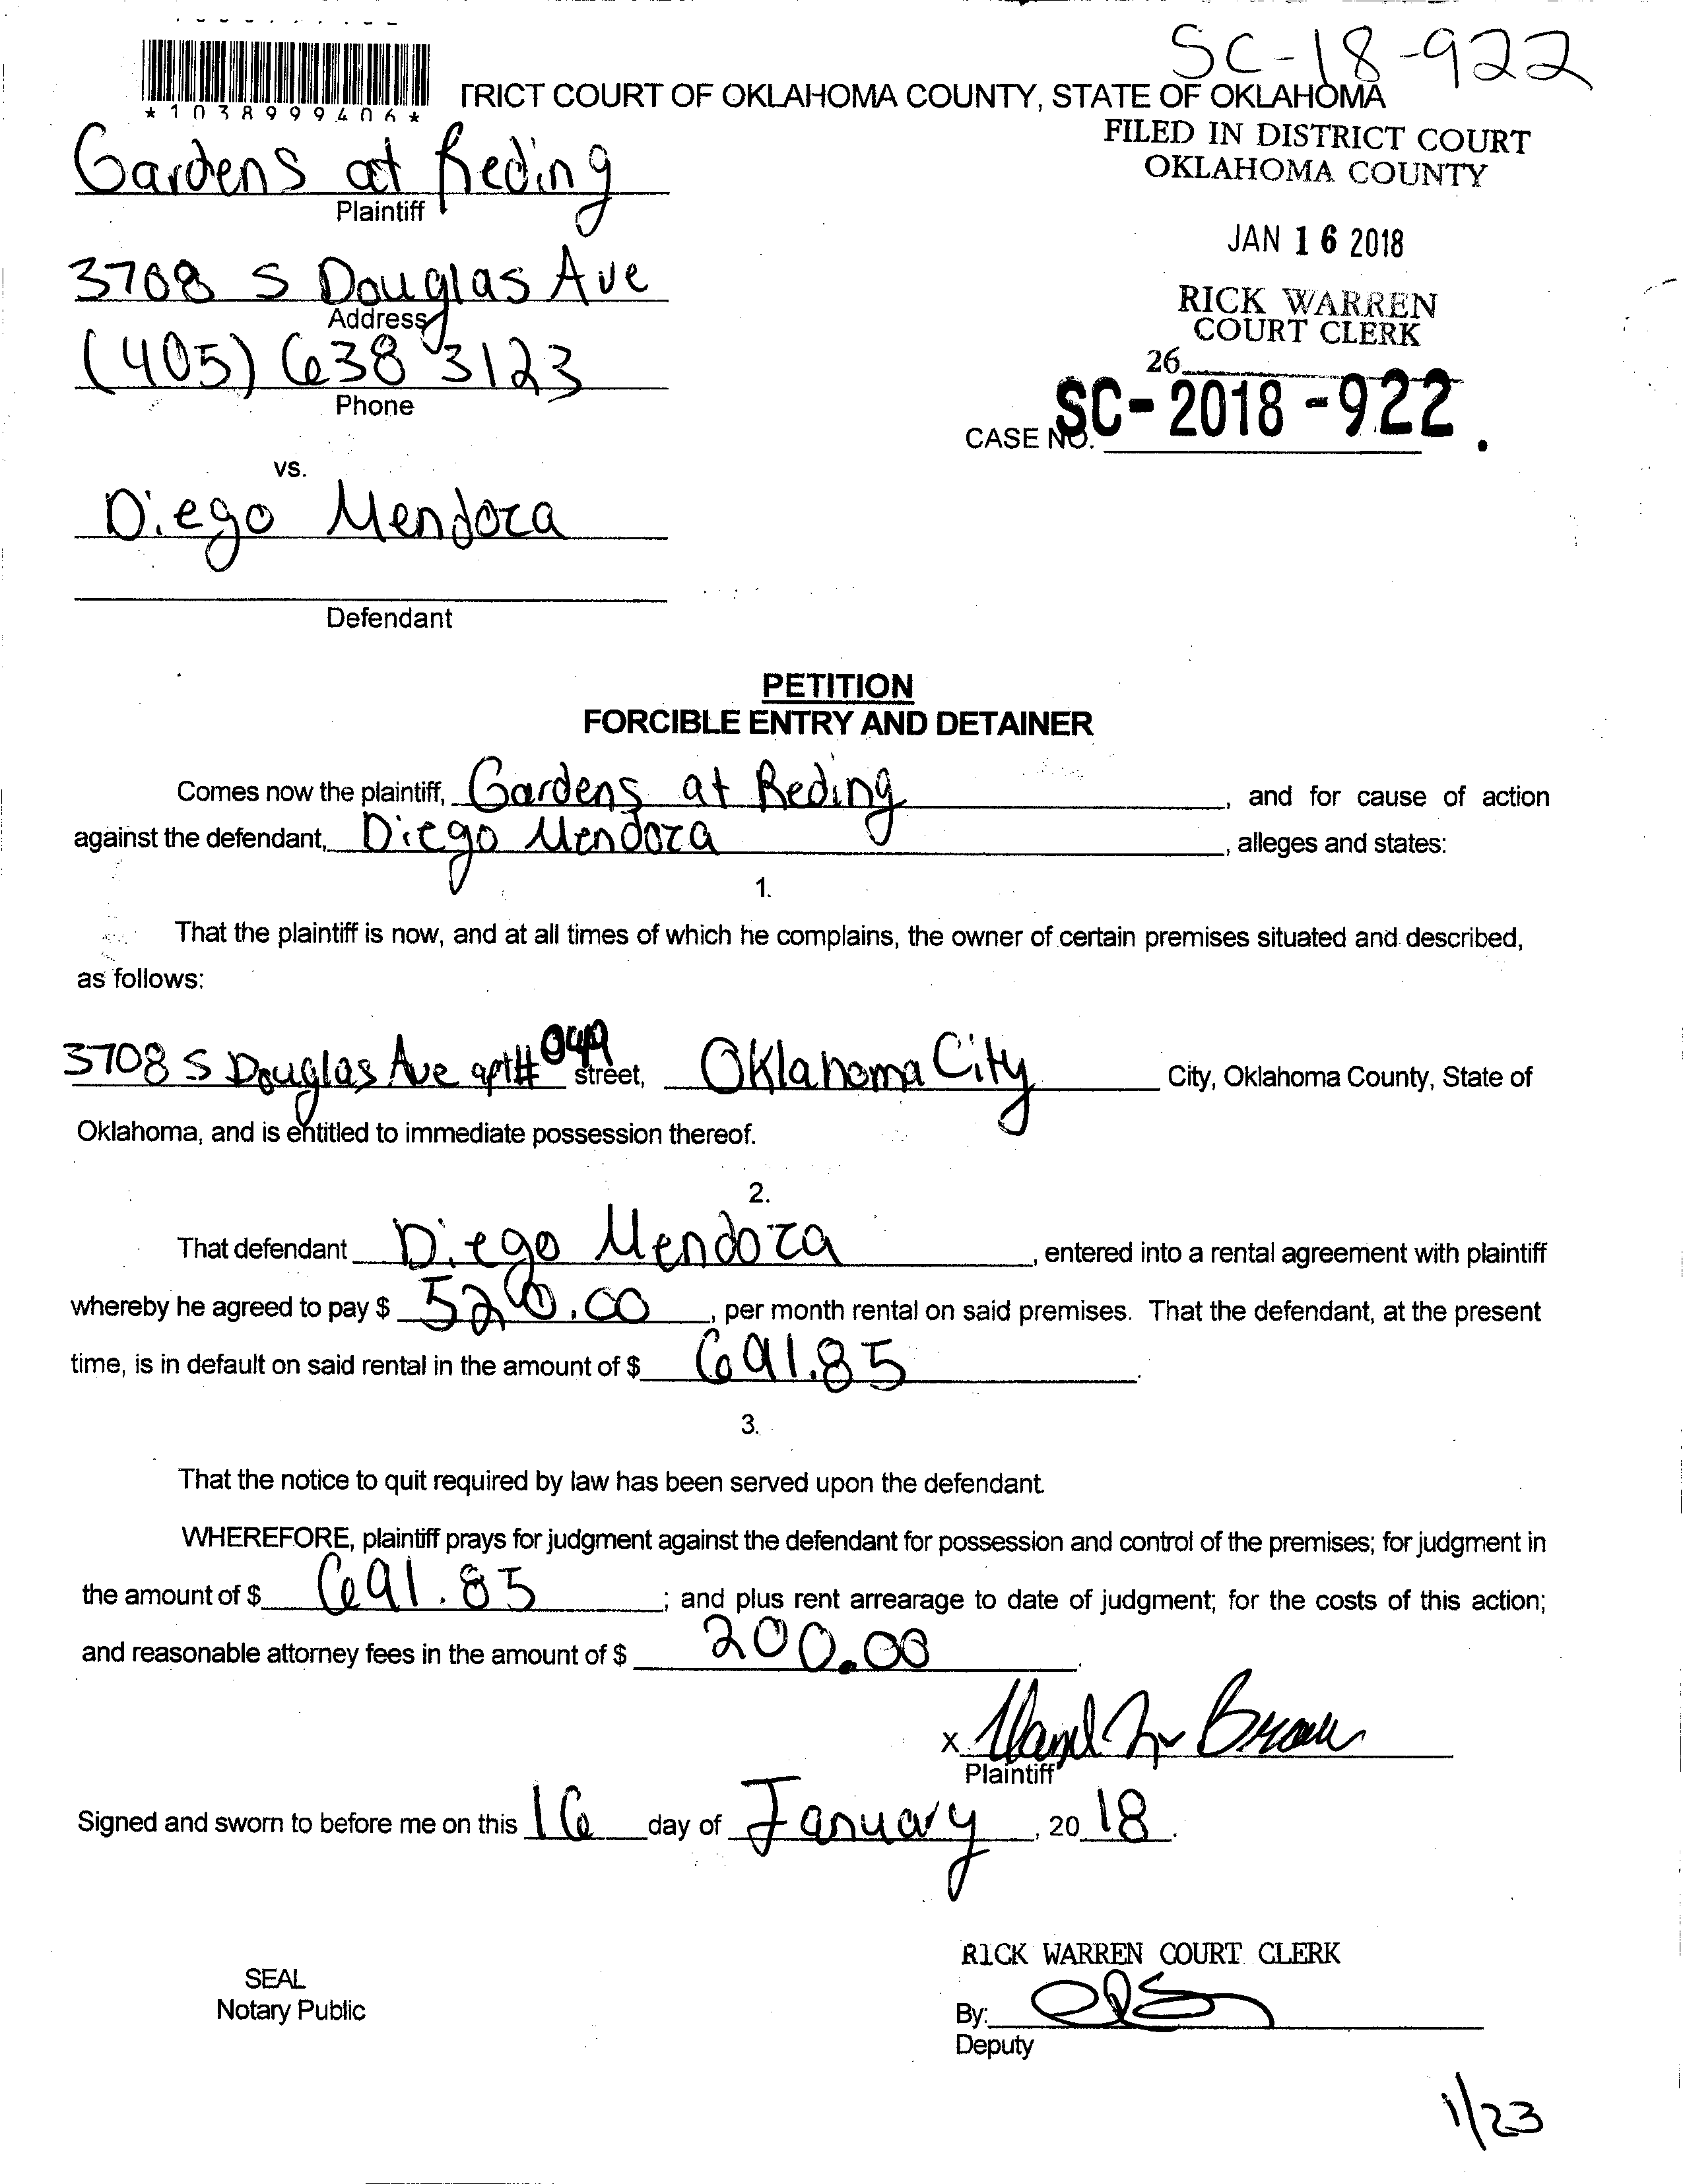 SC-18-922
*1038999406*
TRICT COURT OF OKLAHOMA COUNTY, STATE OF OKLAHOMA
FILED IN DISTRICT COURT
OKLAHOMA COUNTY
Gardens at Reding
Plaintiff
JAN 16 2018
3708 S Douglas Ave
Address
RICK WARREN
COURT CLERK
(405) 638 3123
Phone
26
CASE NO. SC-2018-922.
vs.
Diego Mendoza
Defendant
PETITION
FORCIBLE ENTRY AND DETAINER
Comes now the plaintiff, Gardens at Reding, and for cause of action
against the defendant, Diego Mendoza, alleges and states:
1.
That the plaintiff is now, and at all times of which he complains, the owner of certain premises situated and described,
as follows:
3708 S Douglas Ave apt# 049 street, Oklahoma City City, Oklahoma County, State of
Oklahoma, and is entitled to immediate possession thereof.
2.
That defendant Diego Mendoza, entered into a rental agreement with plaintiff
whereby he agreed to pay $ , per month rental on said premises. That the defendant, at the present
time, is in default on said rental in the amount of $ 691.85.
3.
That the notice to quit required by law has been served upon the defendant.
WHEREFORE, plaintiff prays for judgment against the defendant for possession and control of the premises; for judgment in
the amount of $ 691.85; and plus rent arrearage to date of judgment; for the costs of this action;
and reasonable attorney fees in the amount of $ 200.00.
x
Plaintiff
Signed and sworn to before me on this 16 day of January, 2018.
RICK WARREN COURT CLERK
SEAL
Notary Public
By:
Deputy
1/23